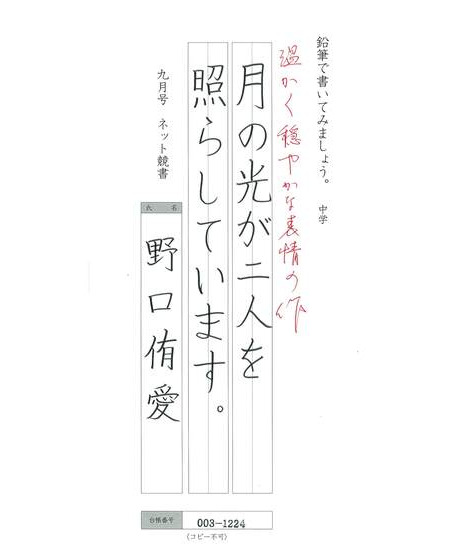 鉛筆で書いてみましょう。 中学
温かく穏やかな表情の作
月の光が二人を
照らしています。
九月号 ネット競書
氏名
野口侑愛
台帳番号 003-1224
(コピー不可)